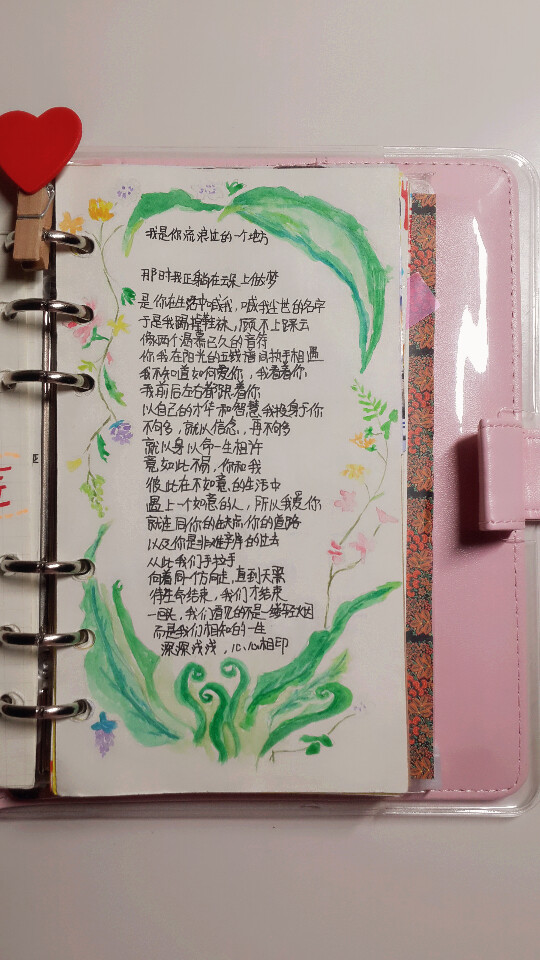 我是你流浪过的一个地方
那时我正躺在云朵上做梦
是你在生活中喊我，喊我尘世的名字
于是我踢掉鞋袜，顾不上踩云
像两个渴慕已久的音符
你我在阳光的五线谱间执手相遇
我不知道如何爱你，我看着你
我前后左右都跟着你
以自己的才华和智慧我投身于你
不够多，就以信念，再不够多
就以身以命一生相许
竟如此不易，你和我
彼此在不如意的生活中
遇上一个如意的人，所以我爱你
就连同你的缺点你的道路
以及你是非难辨的过去
从此我们手拉手
向着同一方向走，直到天黑
待生命结束，我们才结束
一回头，我们看见的不是一缕轻烟
而是我们相知的一生
深深浅浅，心心相印